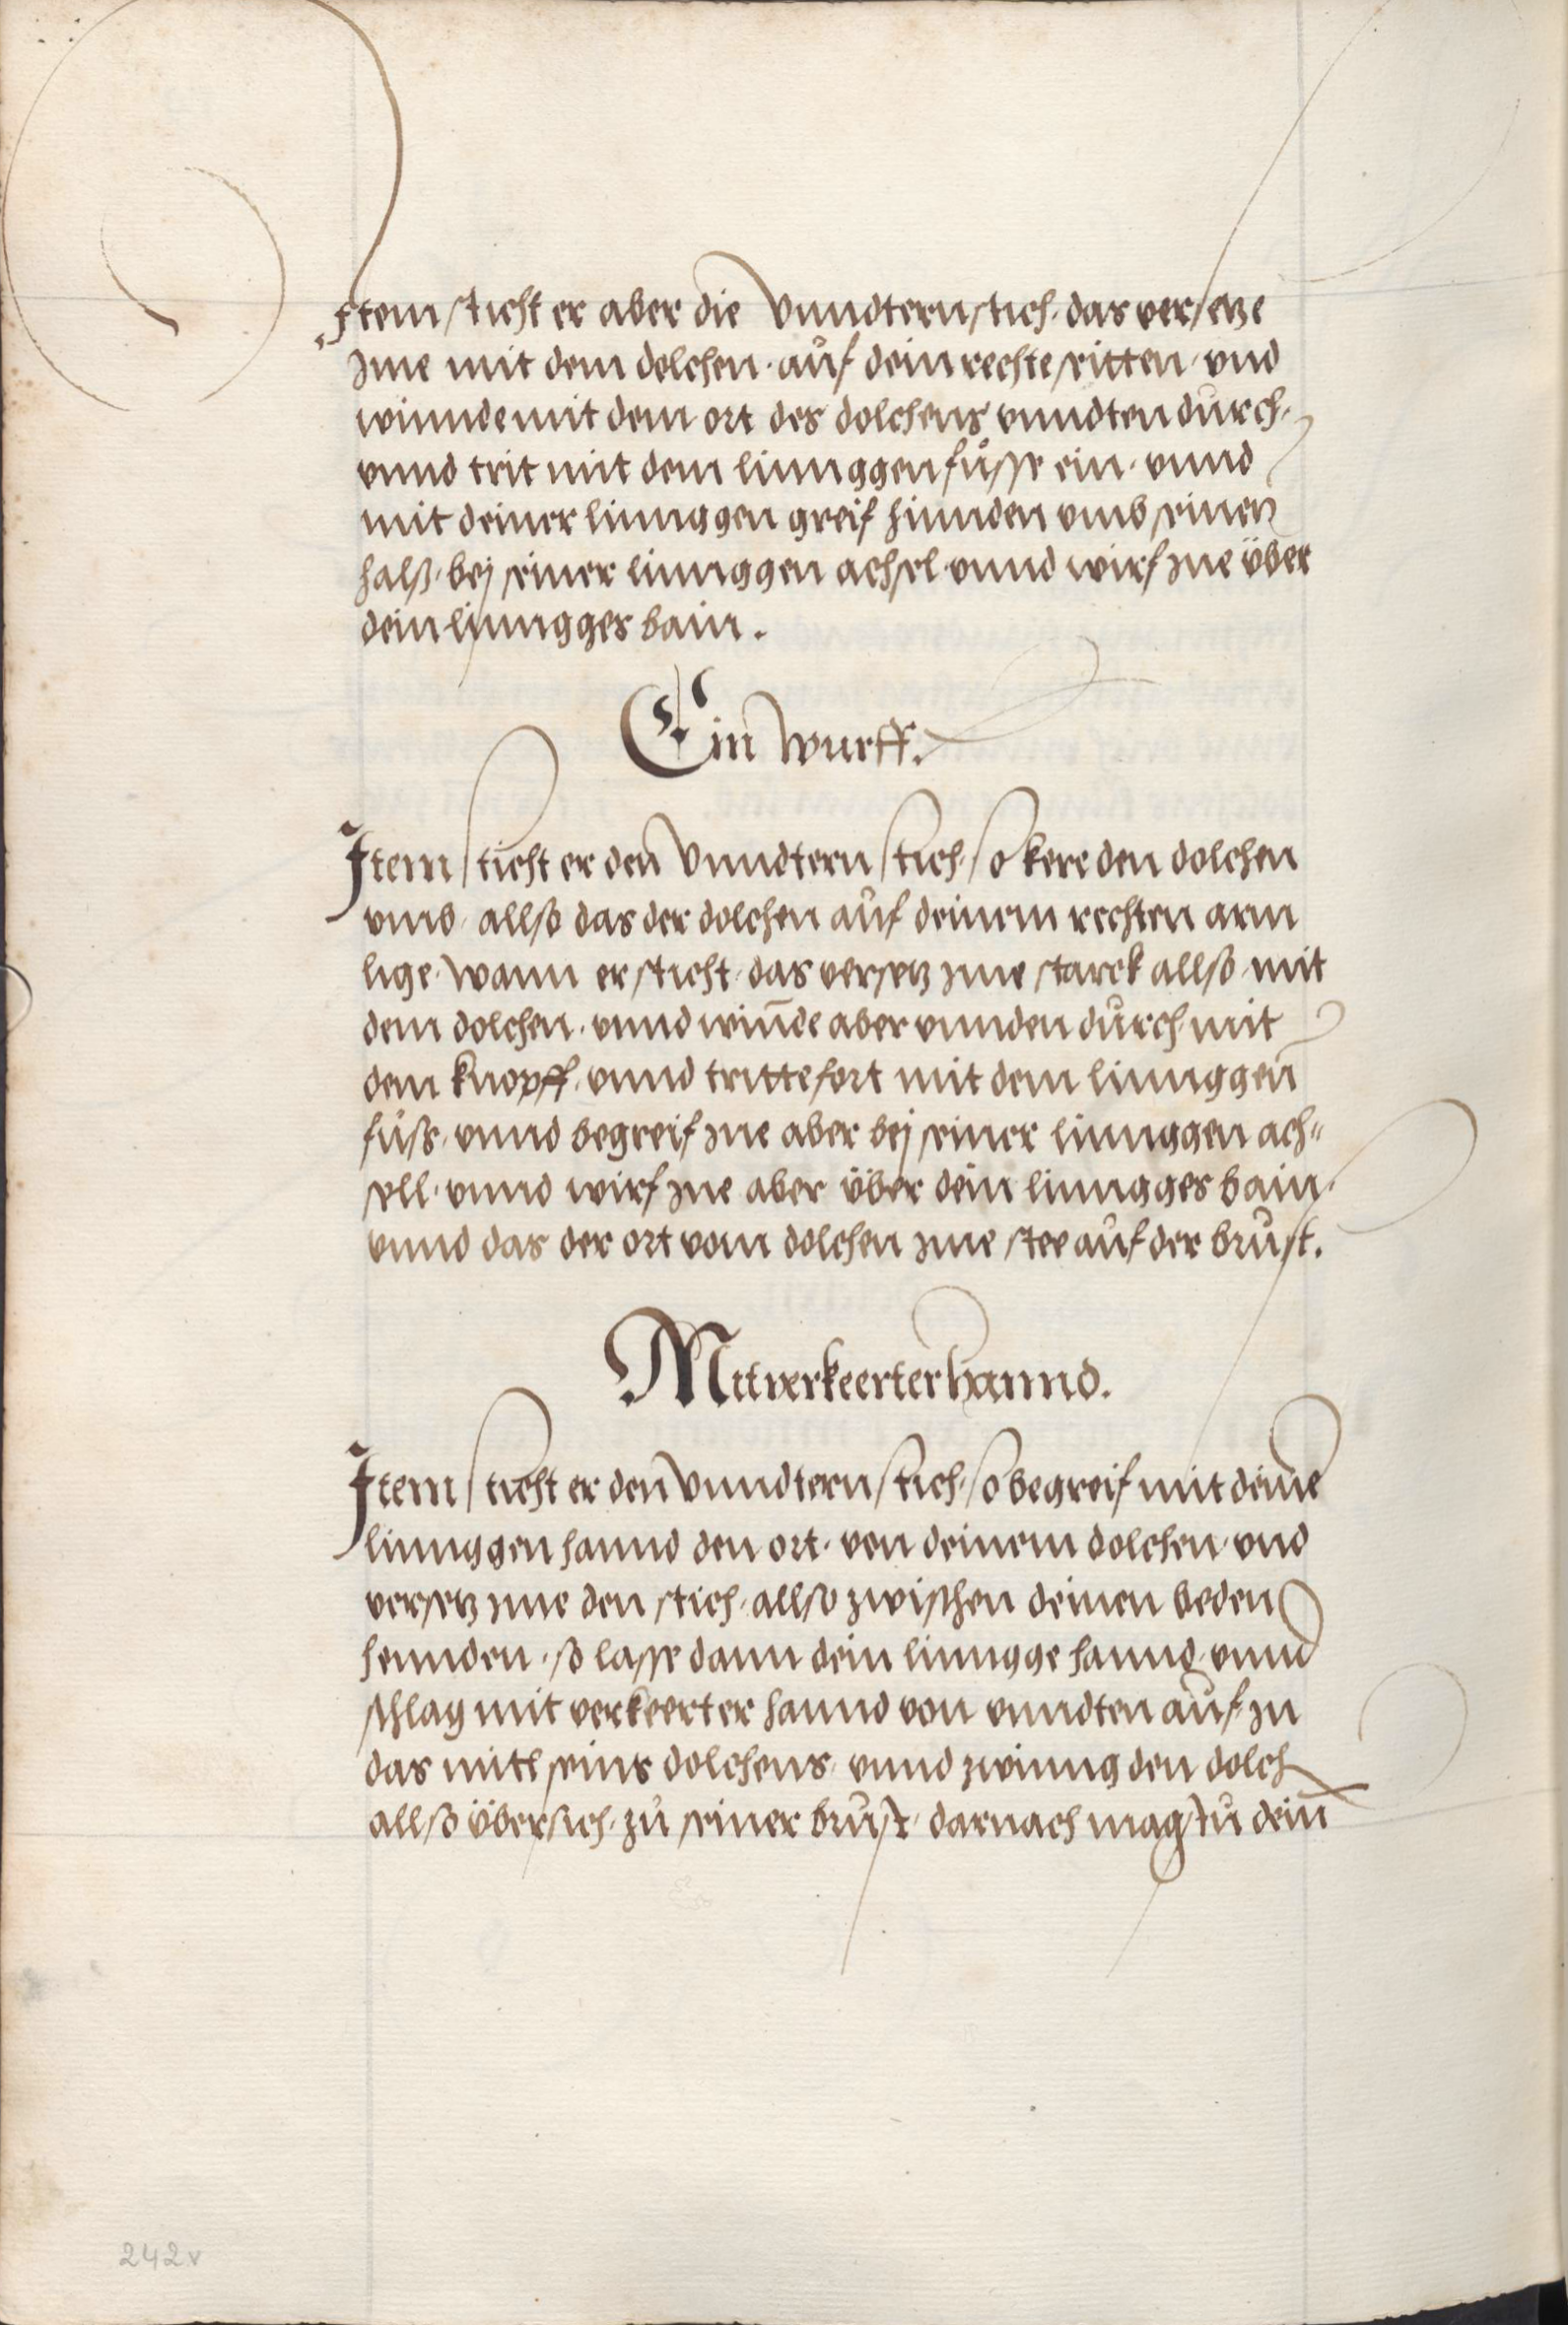 Item sticht er aber die Vnndtern stich, das versetze
Ime mit dem dolchen, auf dein rechte seitten, vnd
winnde mit dem ort des dolchens vnndten durch,
vnnd trit mit dem linnggen füsse ein, vnnd
mit deiner linnggen greif hinnden vmb seinen
halß, bej seiner linnggen achsel vnnd wirf Ine über
dein linngges bain.
Ein Wurff.
Item sticht er den Vnndtern stich, So kere den dolchen
vmb, allso das der dolchen auf deinem rechten arm
lige, Wann er sticht, das versetz Ime starck allso mit
dem dolchen, vnnd win̄de aber vnnden durch mit
dem knopff, vnnd tritte fort mit dem linnggen
fuss, vnnd begreif Ine aber bej seiner linnggen ach-
sell, vnnd wirf Ine aber über dein linngges bain,
vnnd das der ort vom dolchen Ime stee auf der brust.
Mit verkeerter hannd.
Item sticht er den Vnndtern stich, So begreif mit deine
linnggen hannd den ort, von deinem dolchen, vnd
versetz Ime den stich, allso zwischen deinen beden
hennden, so lasse dann dein linngge hannd, vnnd
schlag mit verkeerter hannd von vnndten auf In
das mitl seins dolchens, vnnd zwinng den dolch
allso übersich, zů seiner brust, darnach magstu dein
242v